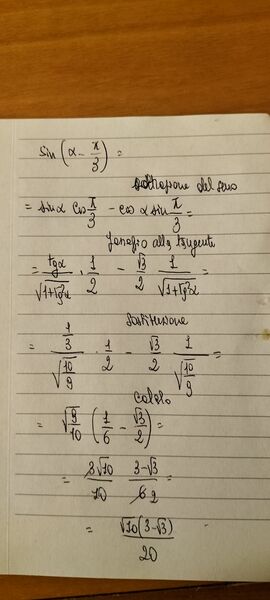 sin(α - π/3) =
sottrazione del seno
= sinα cos π/3 - cos α sin π/3 =
passaggio alla tangente
= tgα/√(1+tg²α) · 1/2 - √3/2 1/√(1+tg²α) =
sostituzione
= (1/3)/√(10/9) · 1/2 - √3/2 1/√(10/9) =
calcolo
= √(9/10) (1/6 - √3/2) =
= 3√10/10 3-√3/6 2 =
= √10(3-√3)/20